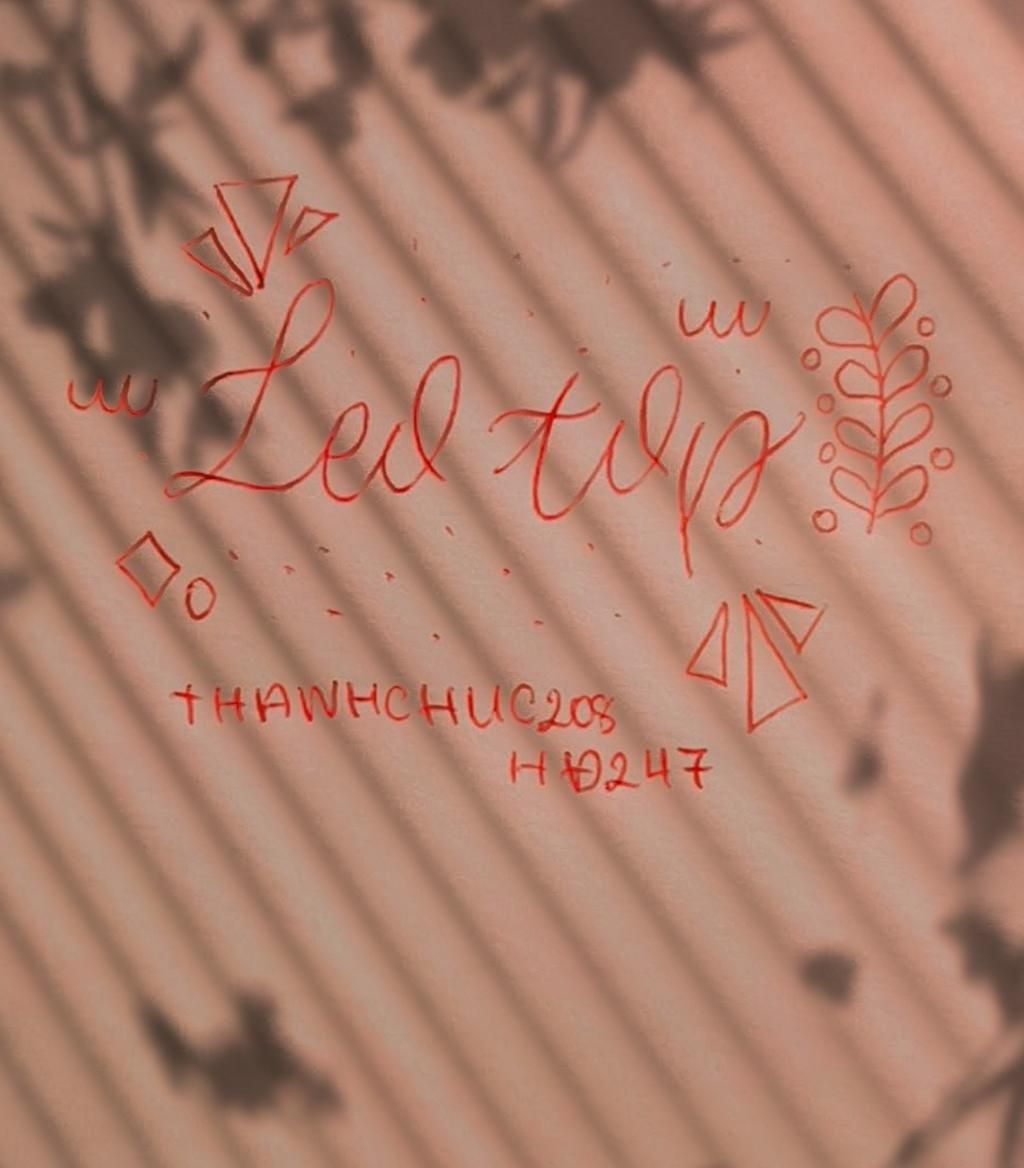 Led tdp
THANHCHUC208
HĐ247